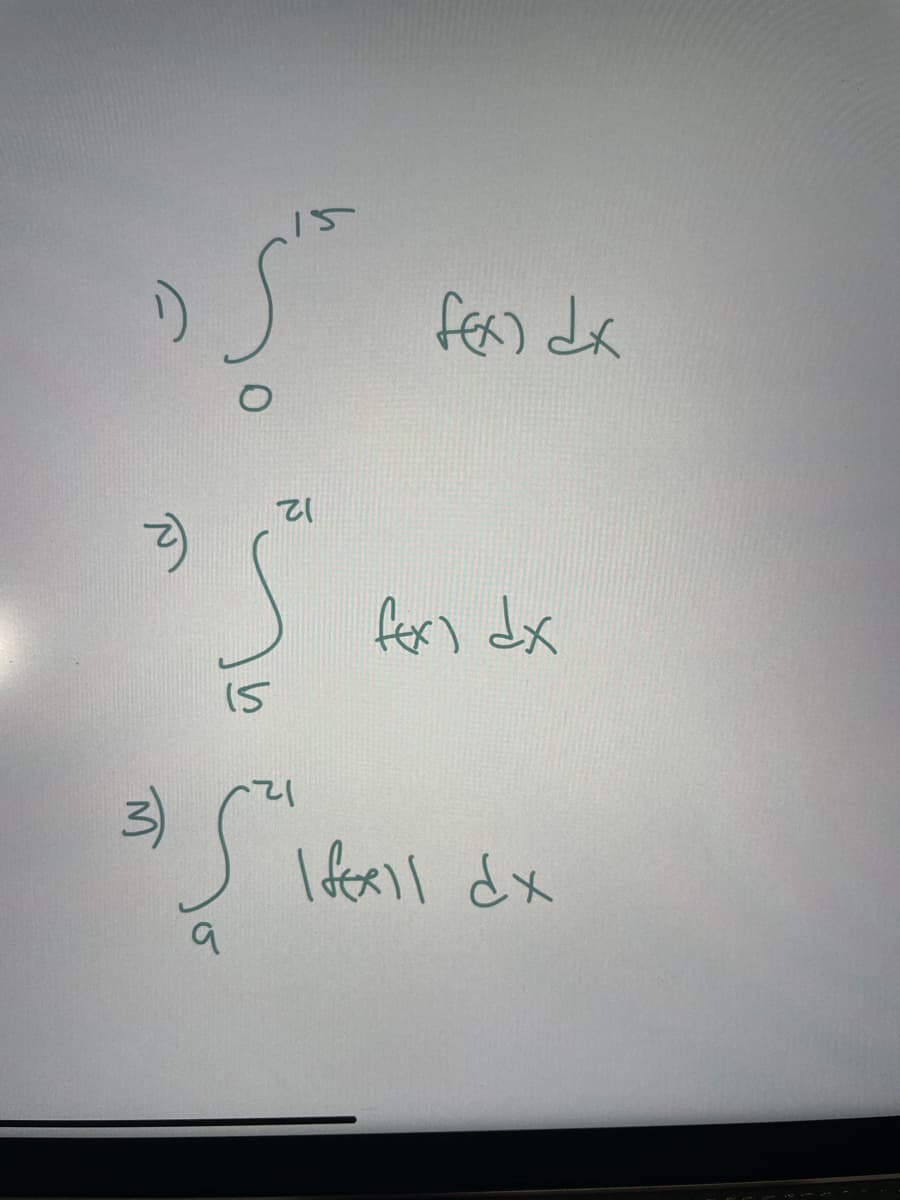 1) ∫₀¹⁵ f(x) dx
2) ∫₁₅²¹ f(x) dx
3) ∫₉²¹ |f(x)| dx